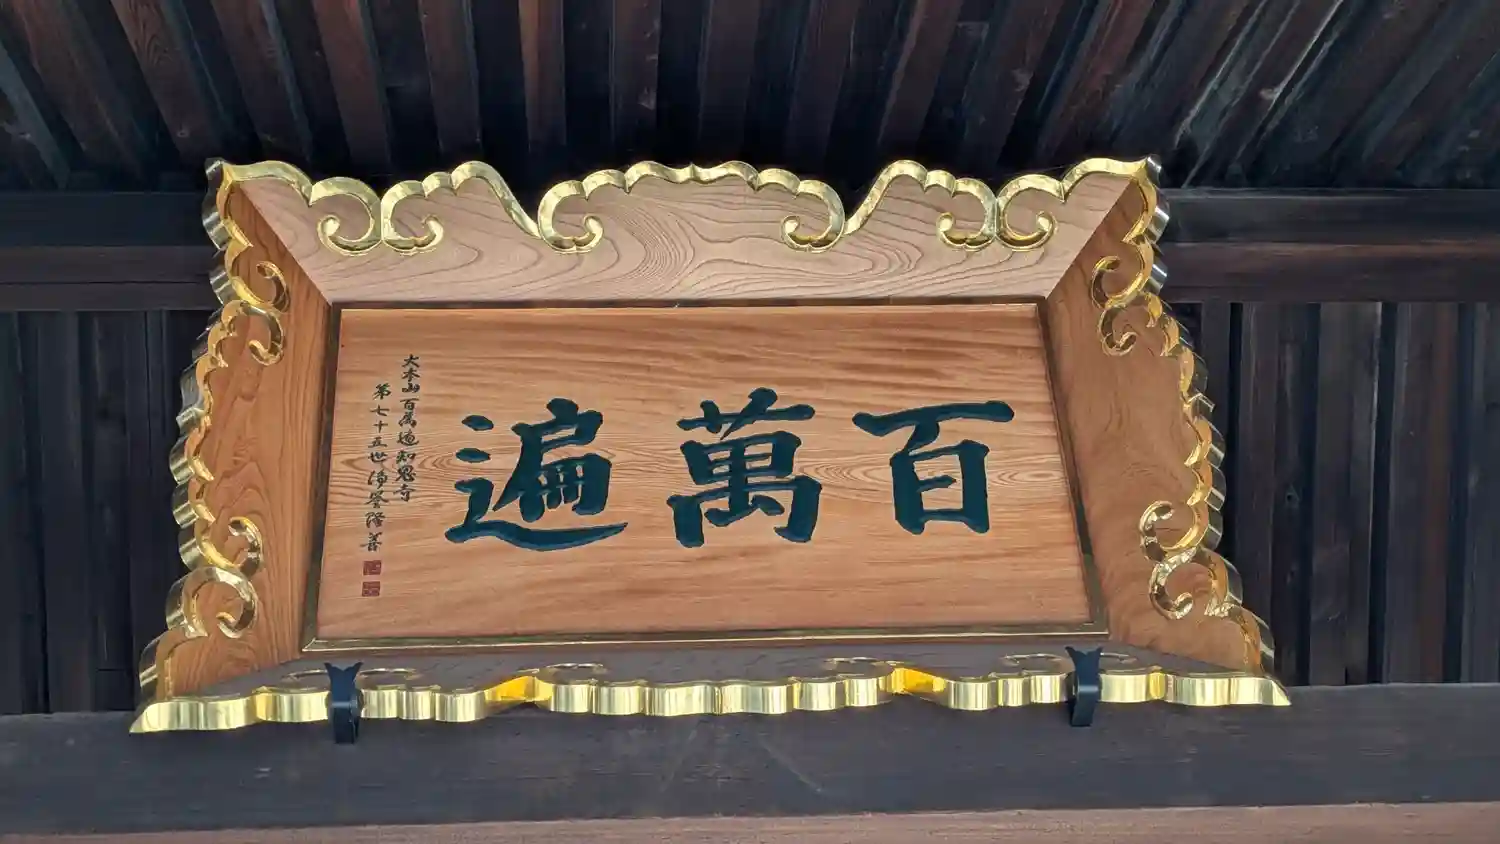 百萬遍
大本山百萬遍知恩寺
第七十五世浄誉隆善